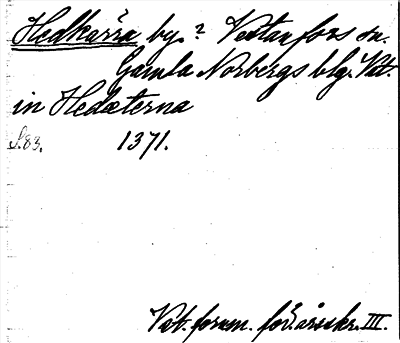 Hedkärra by? Västanfors sn.
Gamla Norbergs blg. Vat.
in Hedæterna
S. 83. 1371.
Vat. fornm. för. årsskr. III.